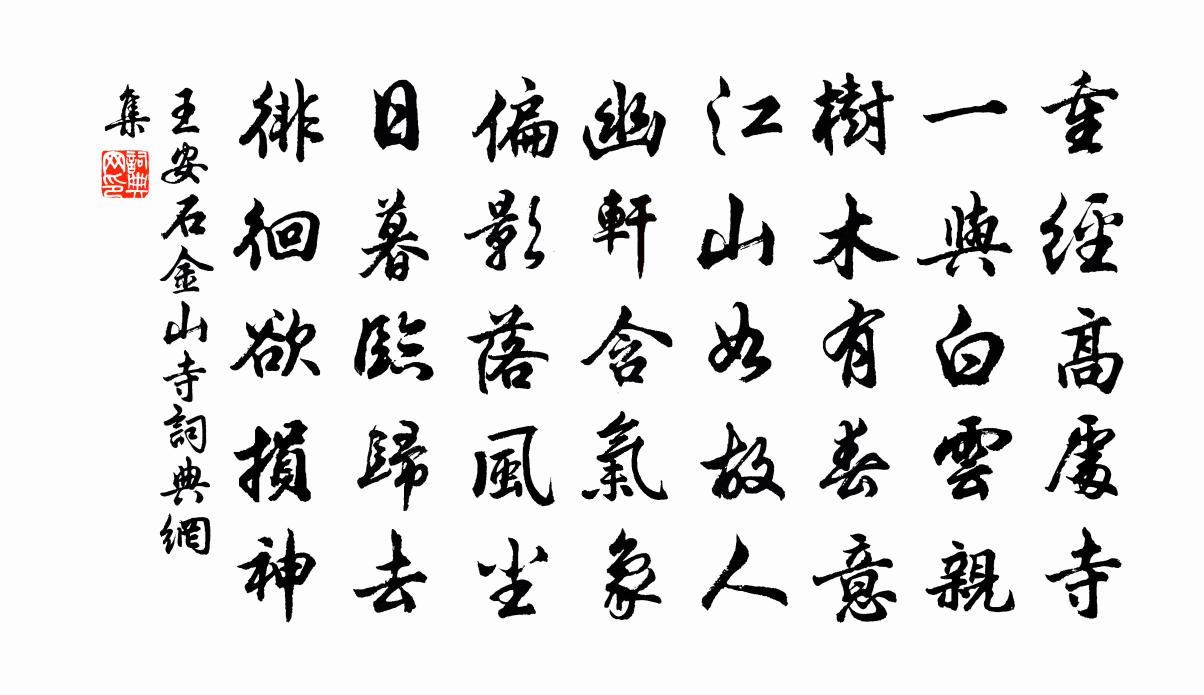 重經高處寺
一與白雲親
樹木有春意
江山如故人
幽軒含氣象
偏影落風尘
日暮臨歸去
徘徊欲損神
王安石金山寺詞典網
集
詞典
网印